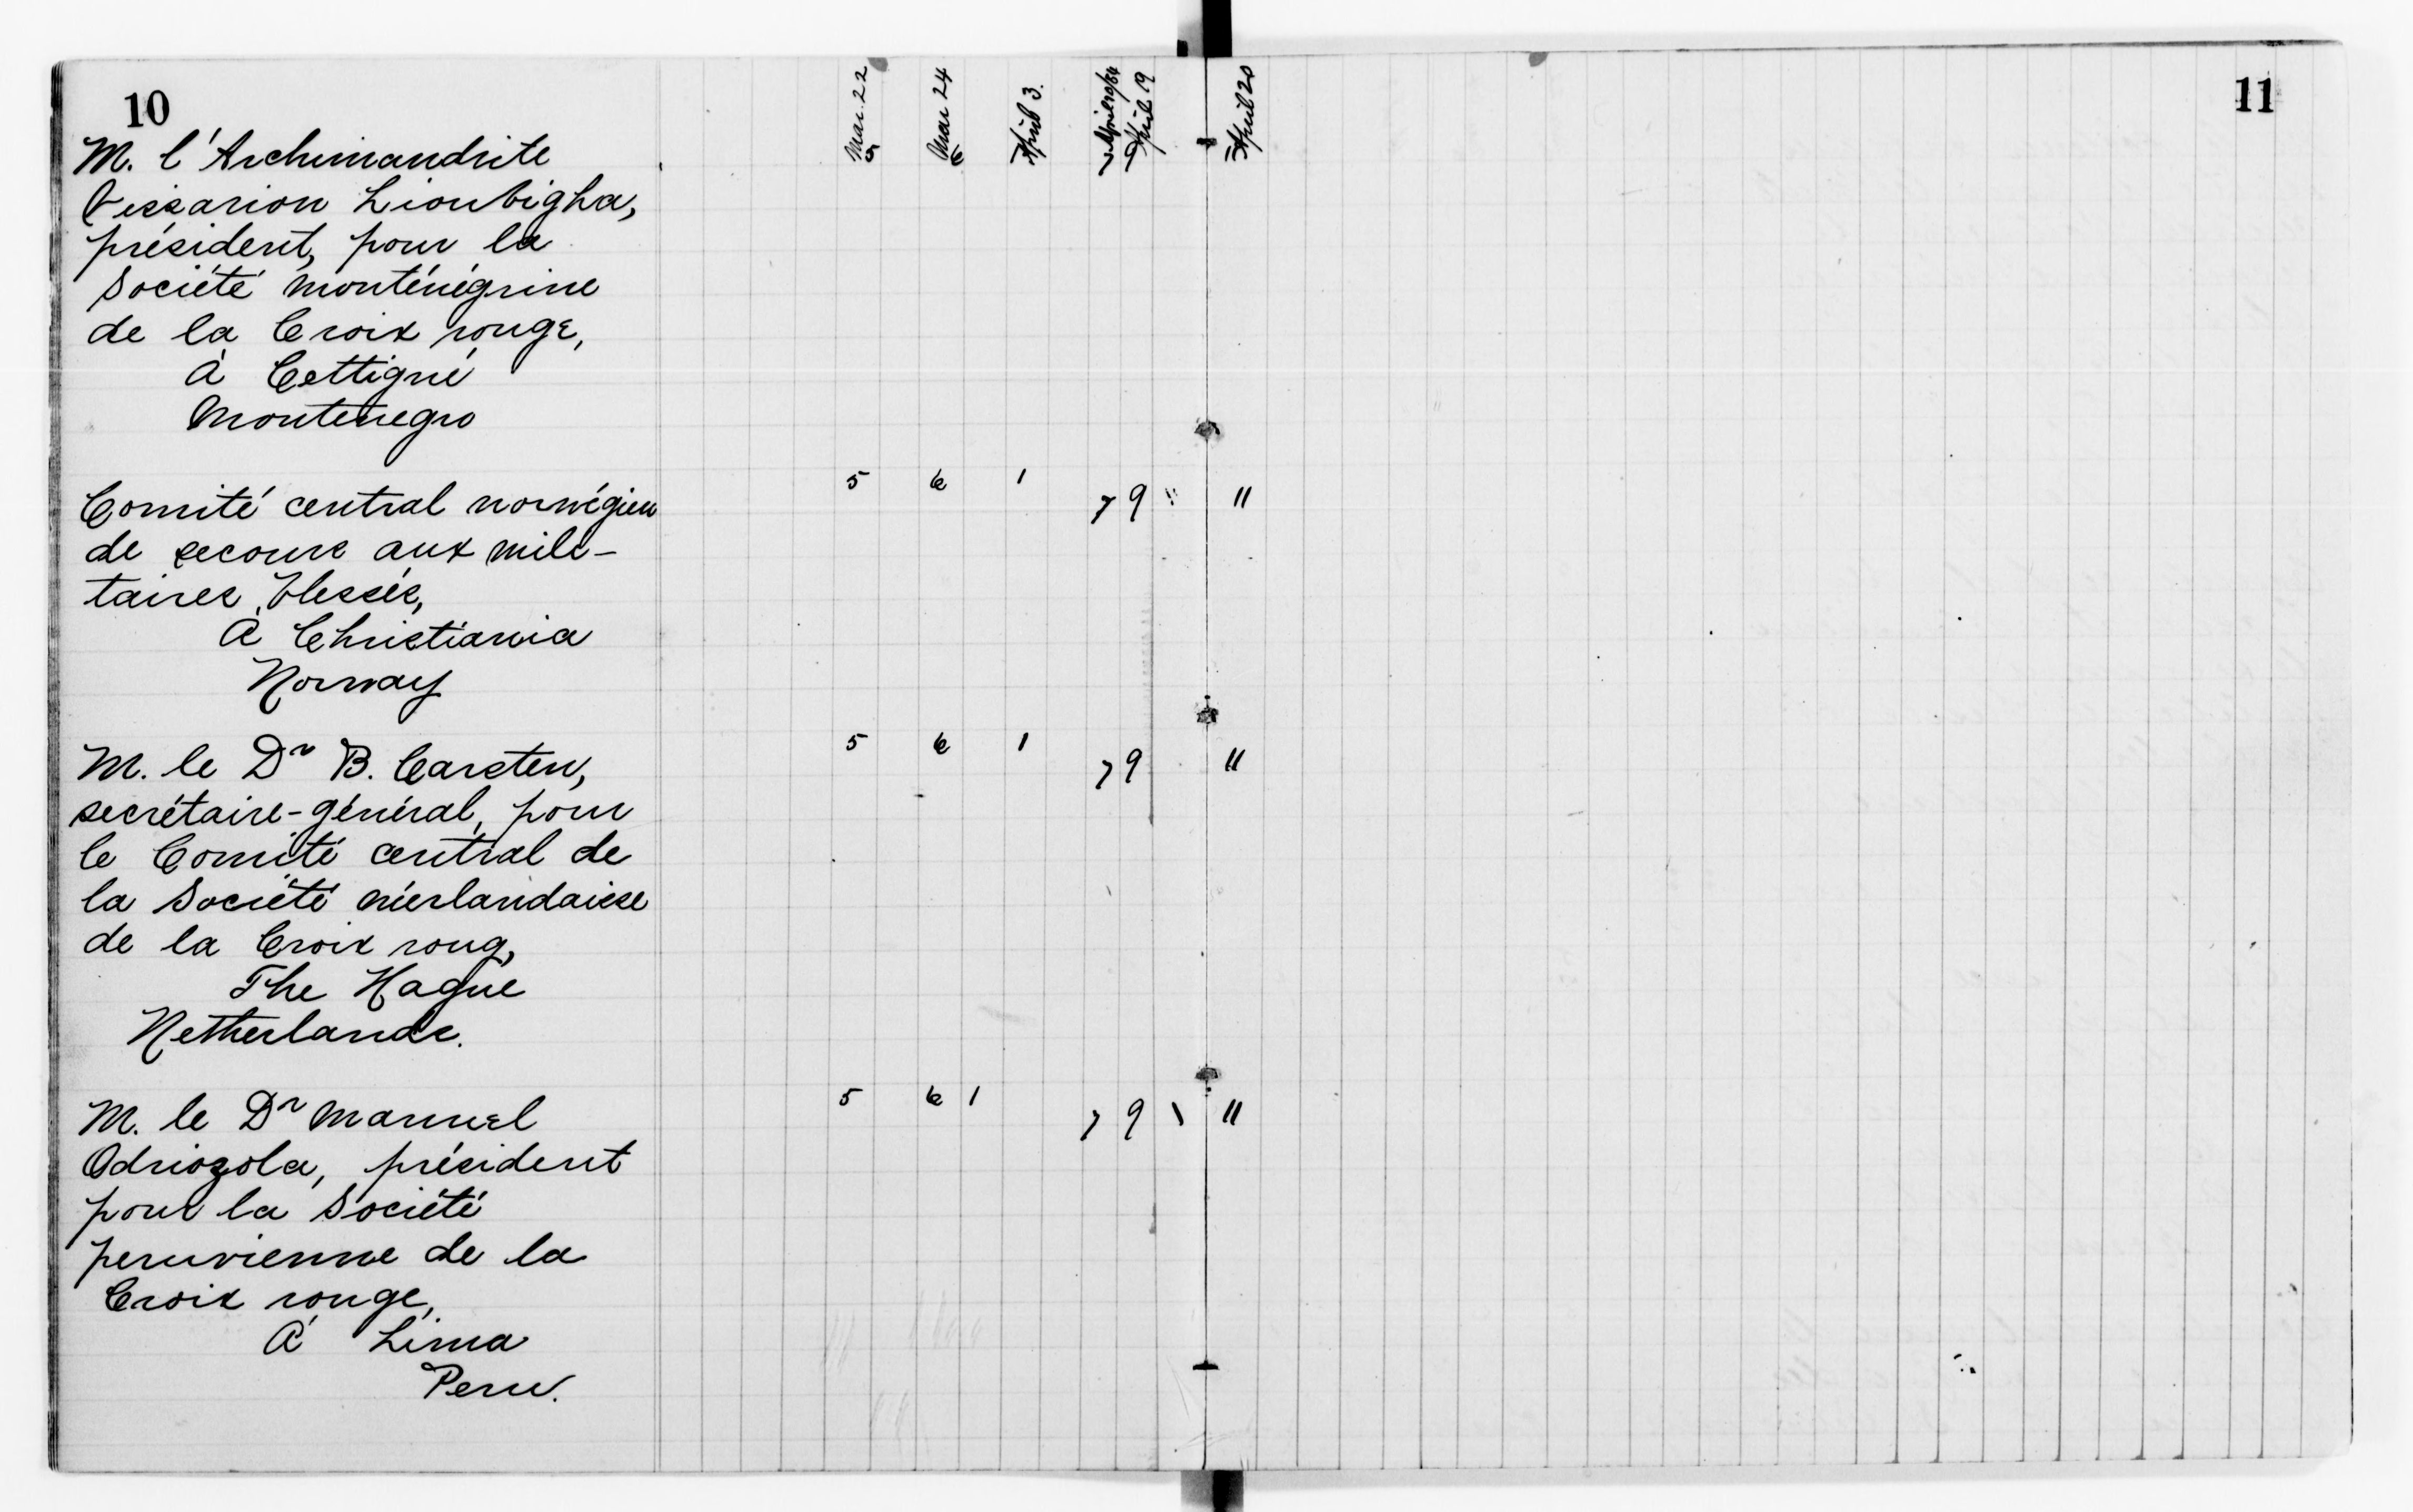 10
11
Mar. 22
Mar 24
April 3.
April 19
April 20
M. l'Archimandrite
Vissarion Lioubigha,
président, pour la
Société monténégrine
de la Croix rouge,
à Cettigné
Montenegro
5 6 1 7 9 11
Comité central norwégien
de secours aux mili-
taires blessés,
À Christiania
Norway
5 6 1 7 9 11
M. le Dr B. Carsten,
secrétaire-général, pour
le Comité central de
la Société néerlandaise
de la Croix roug,
The Hague
Netherlands.
5 6 1 7 9 \ 11
M. le Dr Manuel
Odriozola, président
pour la Société
peruvienne de la
Croix rouge,
À Lima
Peru.